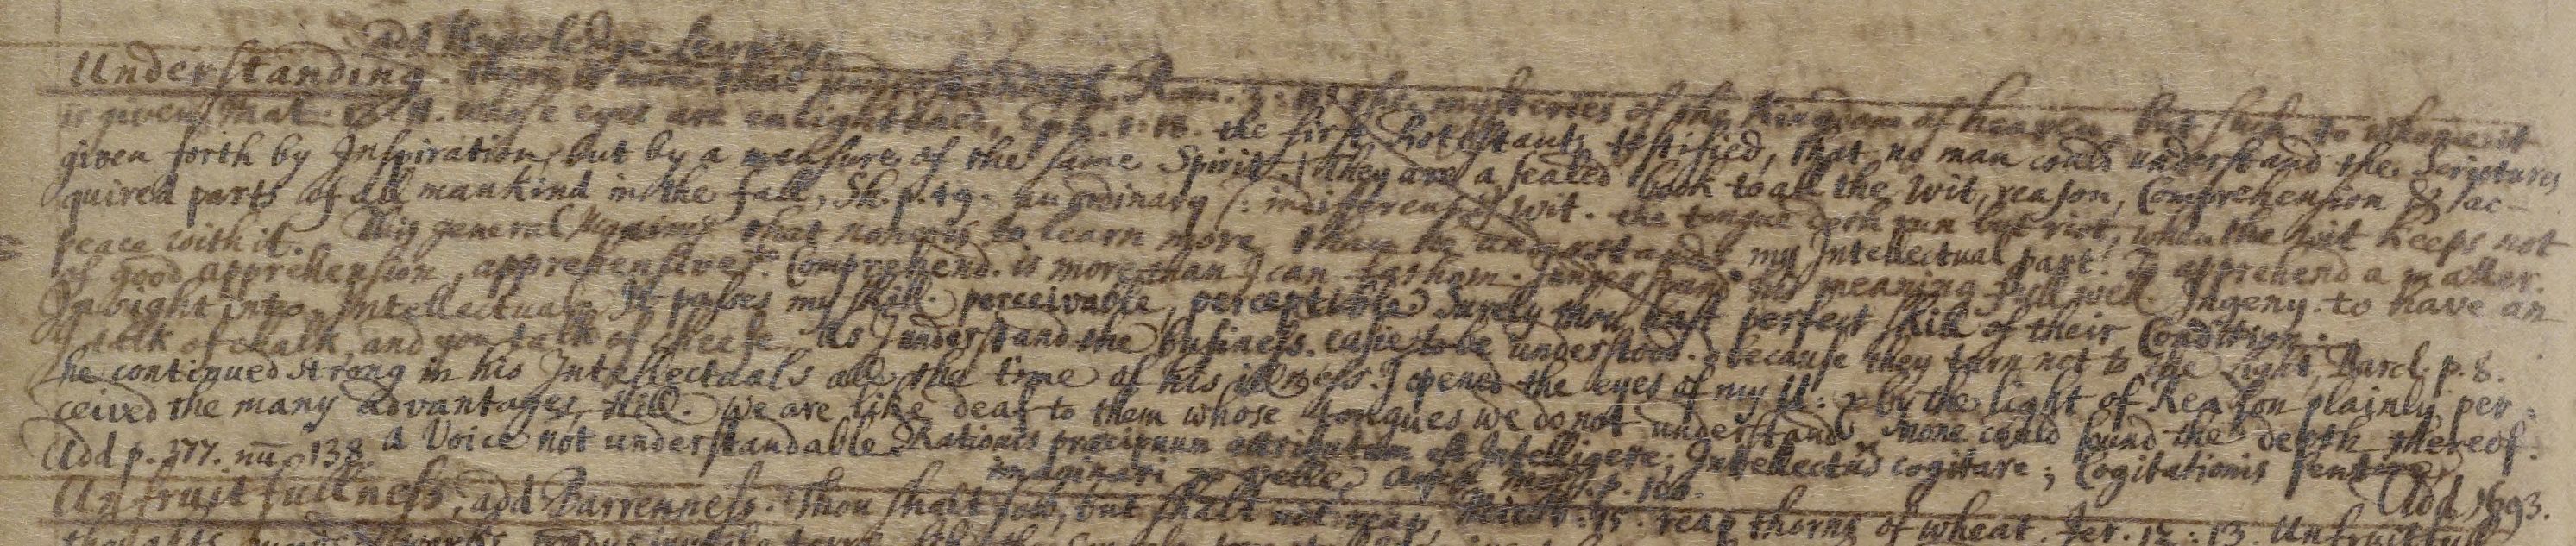 add Knowledge. Learning.
Understanding. there is none that understandeth, Rom. 3: 11. the mysteries of the Kingdom of heaven, but such to whom it
is given, Mat: 13. 11. whose eyes are enlightened, Eph. 1: 18. the first Protestants testified, that no man could understand the Scriptures
given forth by Inspiration, but by a measure of the same Spirit. They are a sealed book to all the Wit, reason, Comprehension & ac-
quired parts of all mankind in the fall, Sh. p. 19. an ordinary (: indifferent) Wit. the tongue doth run but riot, when the wit keeps not
peace with it. This general that none is to learn more than he understands. my Intellectual part. To apprehend a matter.
of good apprehension, apprehensive. Comprehend. is more than I can fathom. I understand his meaning full well. Ingeny. to have an
Insight into. Intellectual. It passes my skill. perceivable, perceptible. Surely thou hast perfect skill of their Condition.
I talk of chalk, and you talk of cheese. As I understand the business. easie to be understood. because they turn not to the Light, Barcl. p. 8.
he continued strong in his Intellectuals all the time of his illness. I opened the eyes of my U: & by the light of Reason plainly per-
ceived the many advantages, Hill. We are like deaf to them whose tongues we do not understand. none could sound the depth thereof.
Add p. 377. nū. 138. a Voice not understandable. Rationis præcipuum est Intelligere; Intellectus cogitare; Cogitationis
imaginari & velle, p. 106. Add, 1693.
Unfruitfullness, add Barrenness. Thou shalt sow, but shalt not reap, Micah 6: 15. reap thorns of wheat. Jer. 12: 13. Unfruitfull